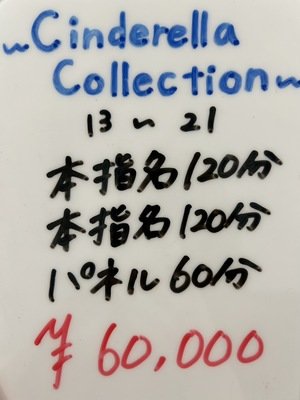 ~Cinderella
Collection~
13~21
本指名120分
本指名120分
パネル60分
¥60,000